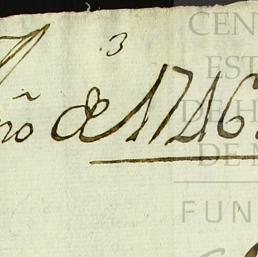 3
Año de 1746.
CEN
EST
DE H
DE M
FUN